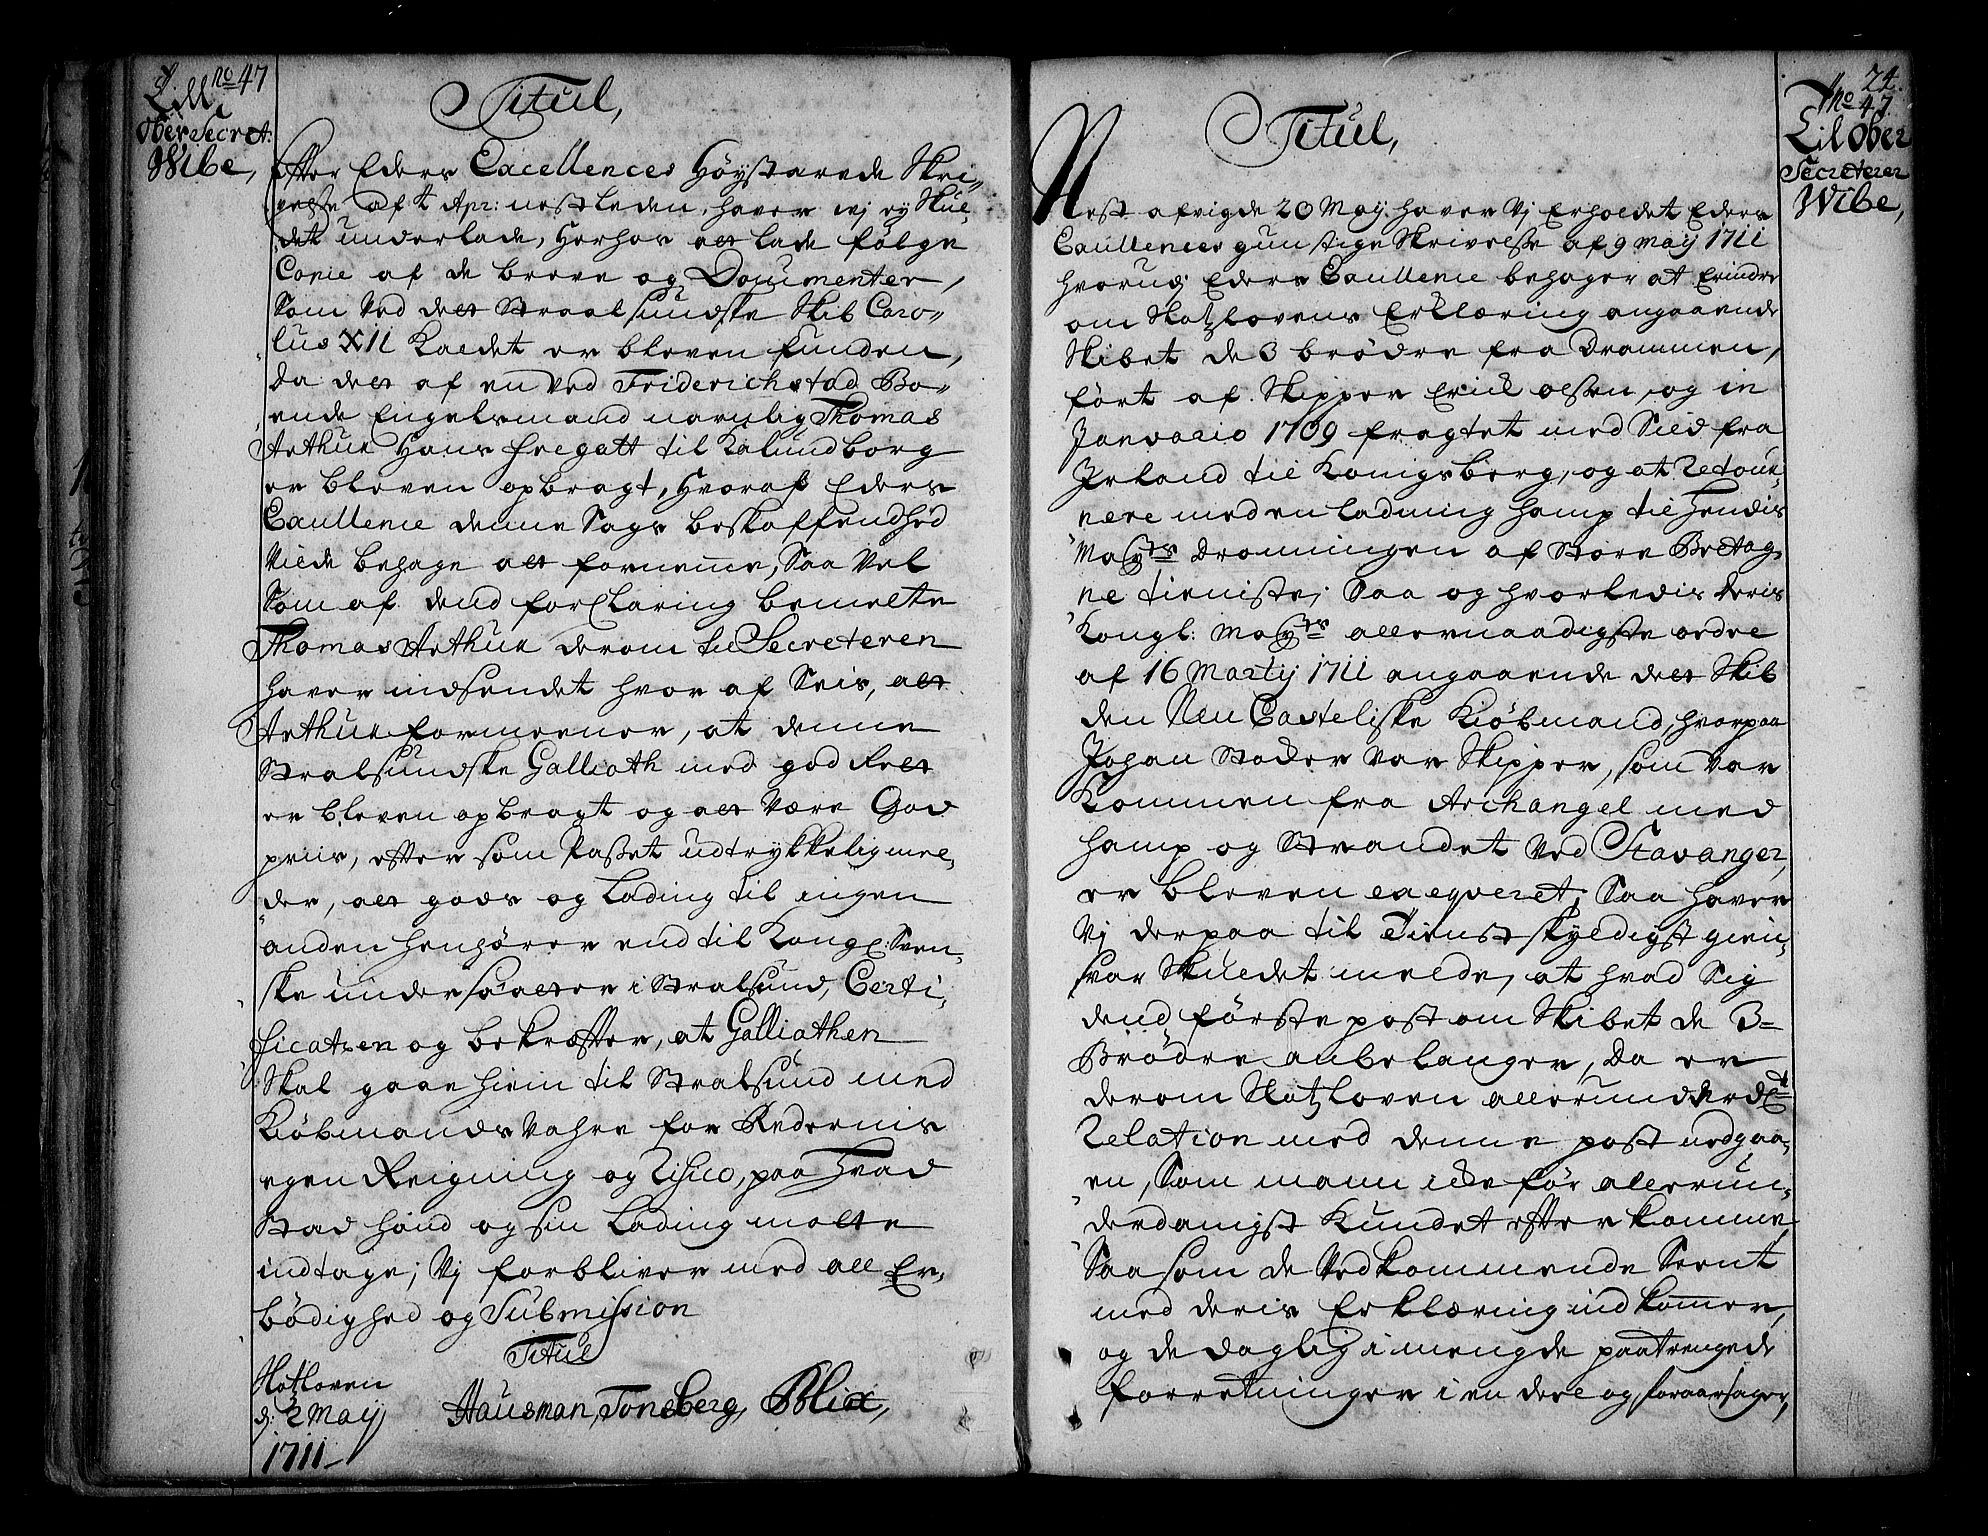 no 47
Till
Ober Secret.
Wibe,
Titul,
Effter Eders Excellences Høystærede Skri„
velse af Apr: nestleden, haver vj ey Skul„
det underlade, herhos att lade følge
Copie af de breve og Documenter,
Som Ved dett Straalsundske Skib Caro„
lus XII Kaldet er bleven funden,
da dett af en ved Friderichstad Bo„
ende Engelsmand navnlig Thomas
Arthur hans fregatt til Kalundborg
er bleven opbragt, hvoraf Eders
Excellence denne Sags beskaffendhed
Vilde behage att fornemme, Saa Vel
Som af dend forclaring bemelte
Thomas Arthur derom til Secreteren
haver indsendet hvor af Seis, att
Arthur formeener, at denne
Stralsundske Galliath med god Rett
er bleven opbragt og att være God
priis, efftersom Passet udtrykkelig mel„
der, att gods og Lading til ingen
anden henhører end til Kongl: Sven„
ske undersaatter i Stralsund, Certi„
ficatzen og bekræffter, at Galliathen
Skal gaae hiem til Stralsund med
Kiøbmands Vahre for Redernis
egen Reigning og Risico, paa hvad
Stad hand og sin Lading motte
indtage; Vj forbliver med all Er„
bødighed og Submission
Titul
Slotzloven
d: 2 Maij
1711
Hausman, Tonsberg, Blix,
74.
No 47
Til Ober
Secreterer
Wibe,
Titul,
Nest afvigde 20 Maij haver Vj Erholdet Eders
Excellences gunstige Skrivelse af 9 Maij 1711
hvorudj Eders Excellence behager at Erindre
om Slotzlovens Erklæring angaaende
Skibet de 3 brødre fra Drammen,
ført af Skipper Erick olsen, og in
Januario 1709 fragtet med Sild fra
Irland til Konigsberg, og at Retour„
nere med en ladning hamp til Hendis
Maytts Dronningen af Store Bretag„
ne tieniste; Saa og hvorledis Deris
Kongl: Maytts allernaadigste ordre
af 16 Martij 1711 angaaende dett Skib
den Neu Casteliske Kiøbmand, hvorpaa
Johan Stoder Var Skipper, som var
Kommen fra Archangel med
hamp og Strandet Ved Stavanger,
er bleven exeqveret; Saa haver
Vj derpaa til Tienstskyldigst gien„
svar Skuldet melde, at hvad Sig
dend første post om Skibet de 3=
Brødre anbelanger, da er
derom Slotzloven allerunderdt
Relation med denne post udgaa„
en, Som mann icke før allerun„
derdanigst Kundet effterkomme,
Saasom de Vedkommende Seent
med deris Erklæring indkommer,
og de daglig i mengde paatrengede
forretninger i en deel og foraarsager,